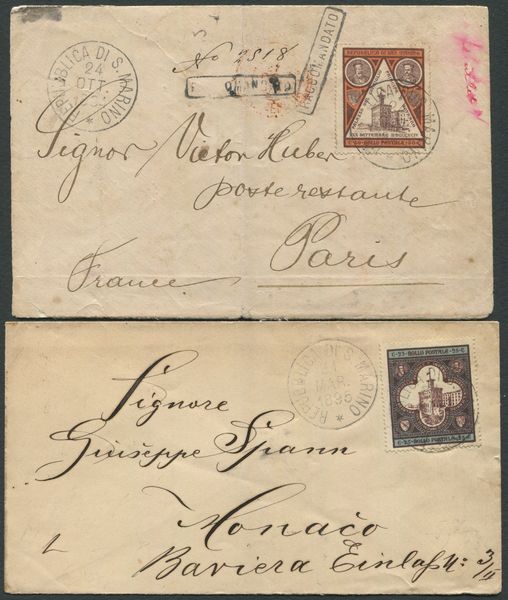 REPUBBLICA DI S. MARINO
24
OTT
No 2518
RACCOMANDATO
REPUBBLICA DI SAN MARINO
XXX SETTEMBRE MDCCCXCIV
BOLLO POSTALE
Signor Victor Huber
poste restante
Paris
France
REPUBBLICA DI S. MARINO
21
MAR.
1895
C. 25 BOLLO POSTALE 25 C.
C. 25 BOLLO POSTALE
Signore
Giuseppe Spann
Monaco
Baviera Einlaß